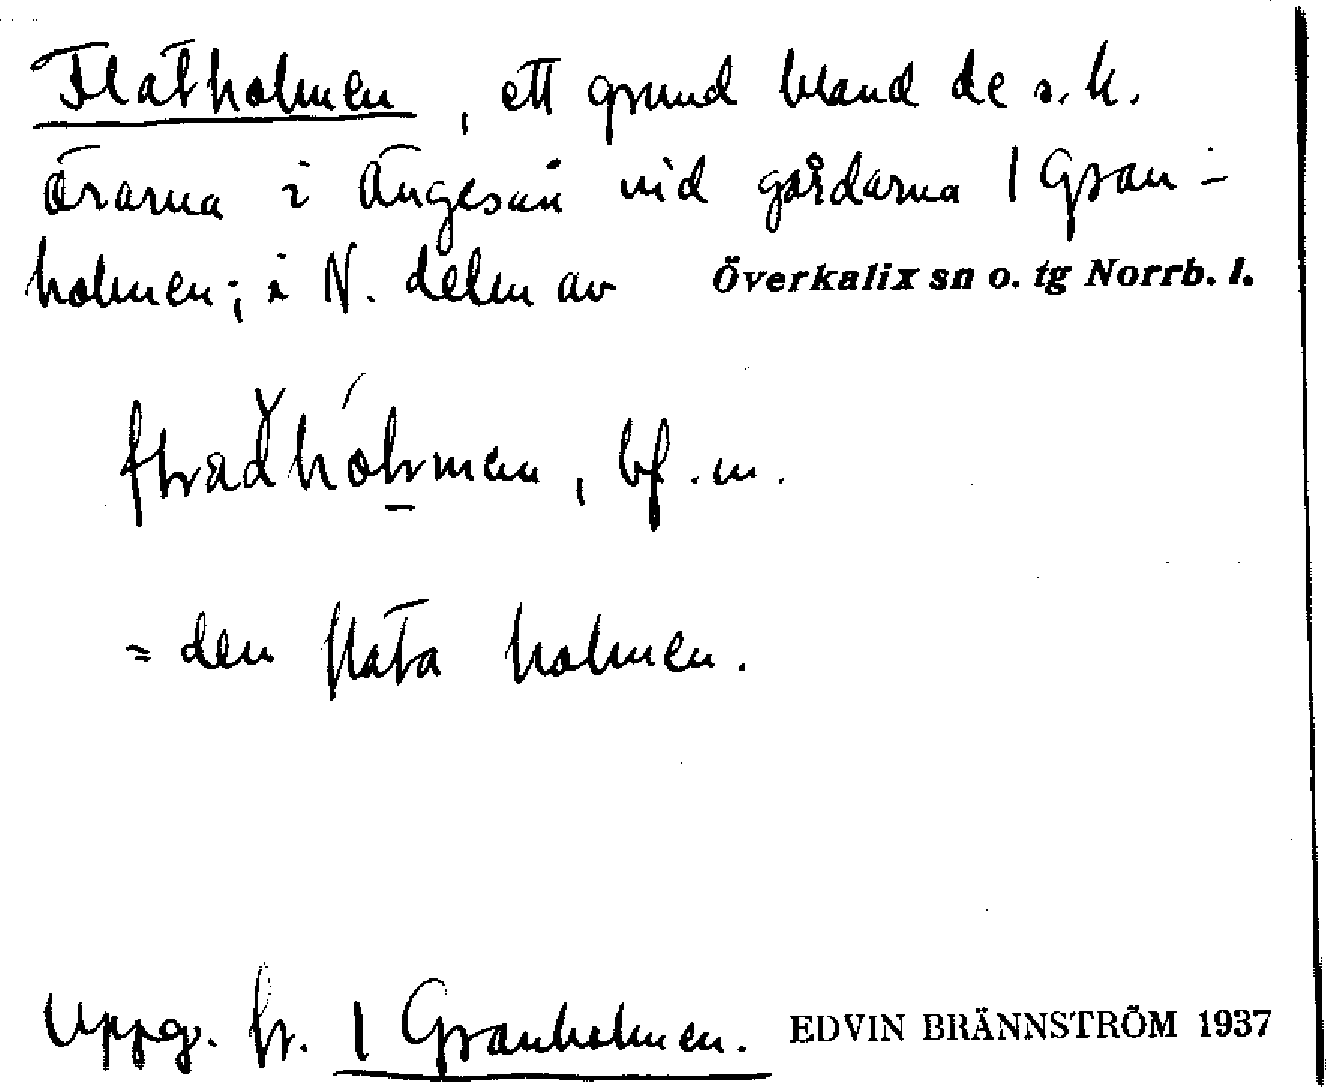 Flatholmen, ett grund bland de s.k.
örarna i Ängesån vid gårdarna 1 Gran-
holmen; i N. delen av Överkalix sn o. tg Norrb. l.
bf. m.
= den flata holmen.
Uppg. fr. 1 Granholmen. EDVIN BRÄNNSTRÖM 1937